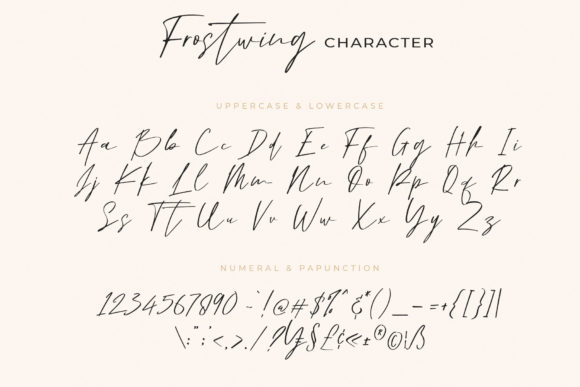 Frostwing CHARACTER
UPPERCASE & LOWERCASE
Aa Bb Cc Dd Ee Ff Gg Hh Ii
Jj Kk Ll Mm Nn Oo Pp Qq Rr
Ss Tt Uu Vv Ww Xx Yy Zz
NUMERAL & PAPUNCTION
1234567890 -`!@#$%^&*()_-=+{[}]|
\:";'<,>./?¥§£¢«±®©¦ß